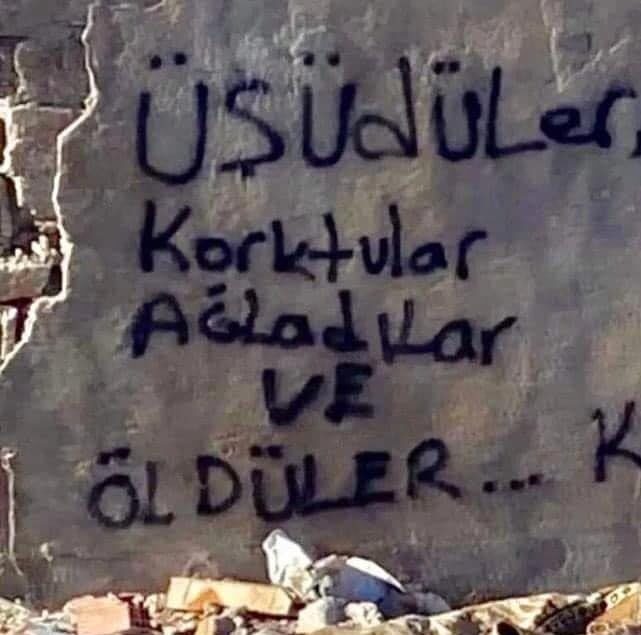 ÜŞÜdÜLer,
Korktular
AĞLadılar
VE
ÖLDÜLER... K